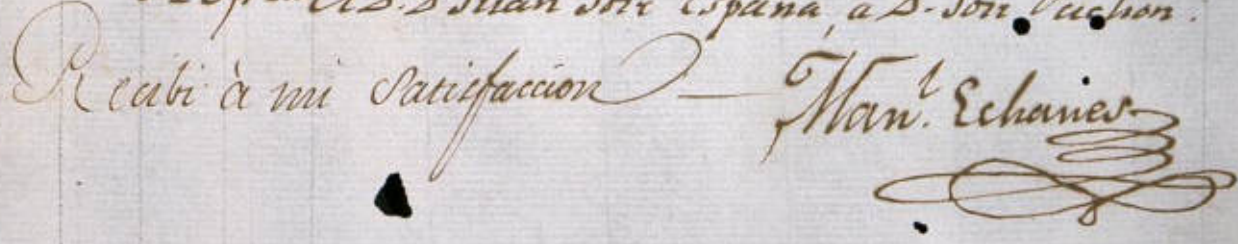 D. Juan José España, à D. José
Recibi à mi Satisfaccion — Man.l Echaries